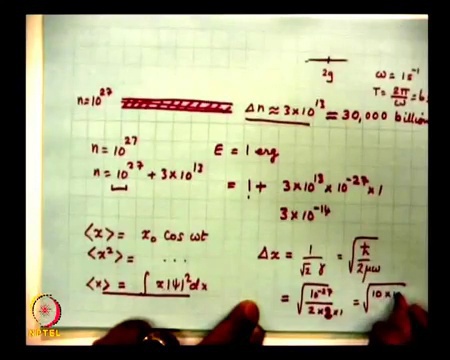 2g
ω = 1 s⁻¹
T = 2π/ω = 6
n = 10²⁷
Δn ≈ 3×10¹³ ≈ 30,000 billion
n = 10²⁷
E = 1 erg
n = 10²⁷ + 3×10¹³
= 1 + 3×10¹³ × 10⁻²⁷ × 1
3×10⁻¹⁴
⟨x⟩ = x₀ cos ωt
⟨x²⟩ = ...
Δx = 1/(√2 γ) = √(ħ/2μω)
⟨x⟩ = ∫ x|ψ|² dx
= √(10⁻²⁷/2×2×1) = √(10×
NPTEL